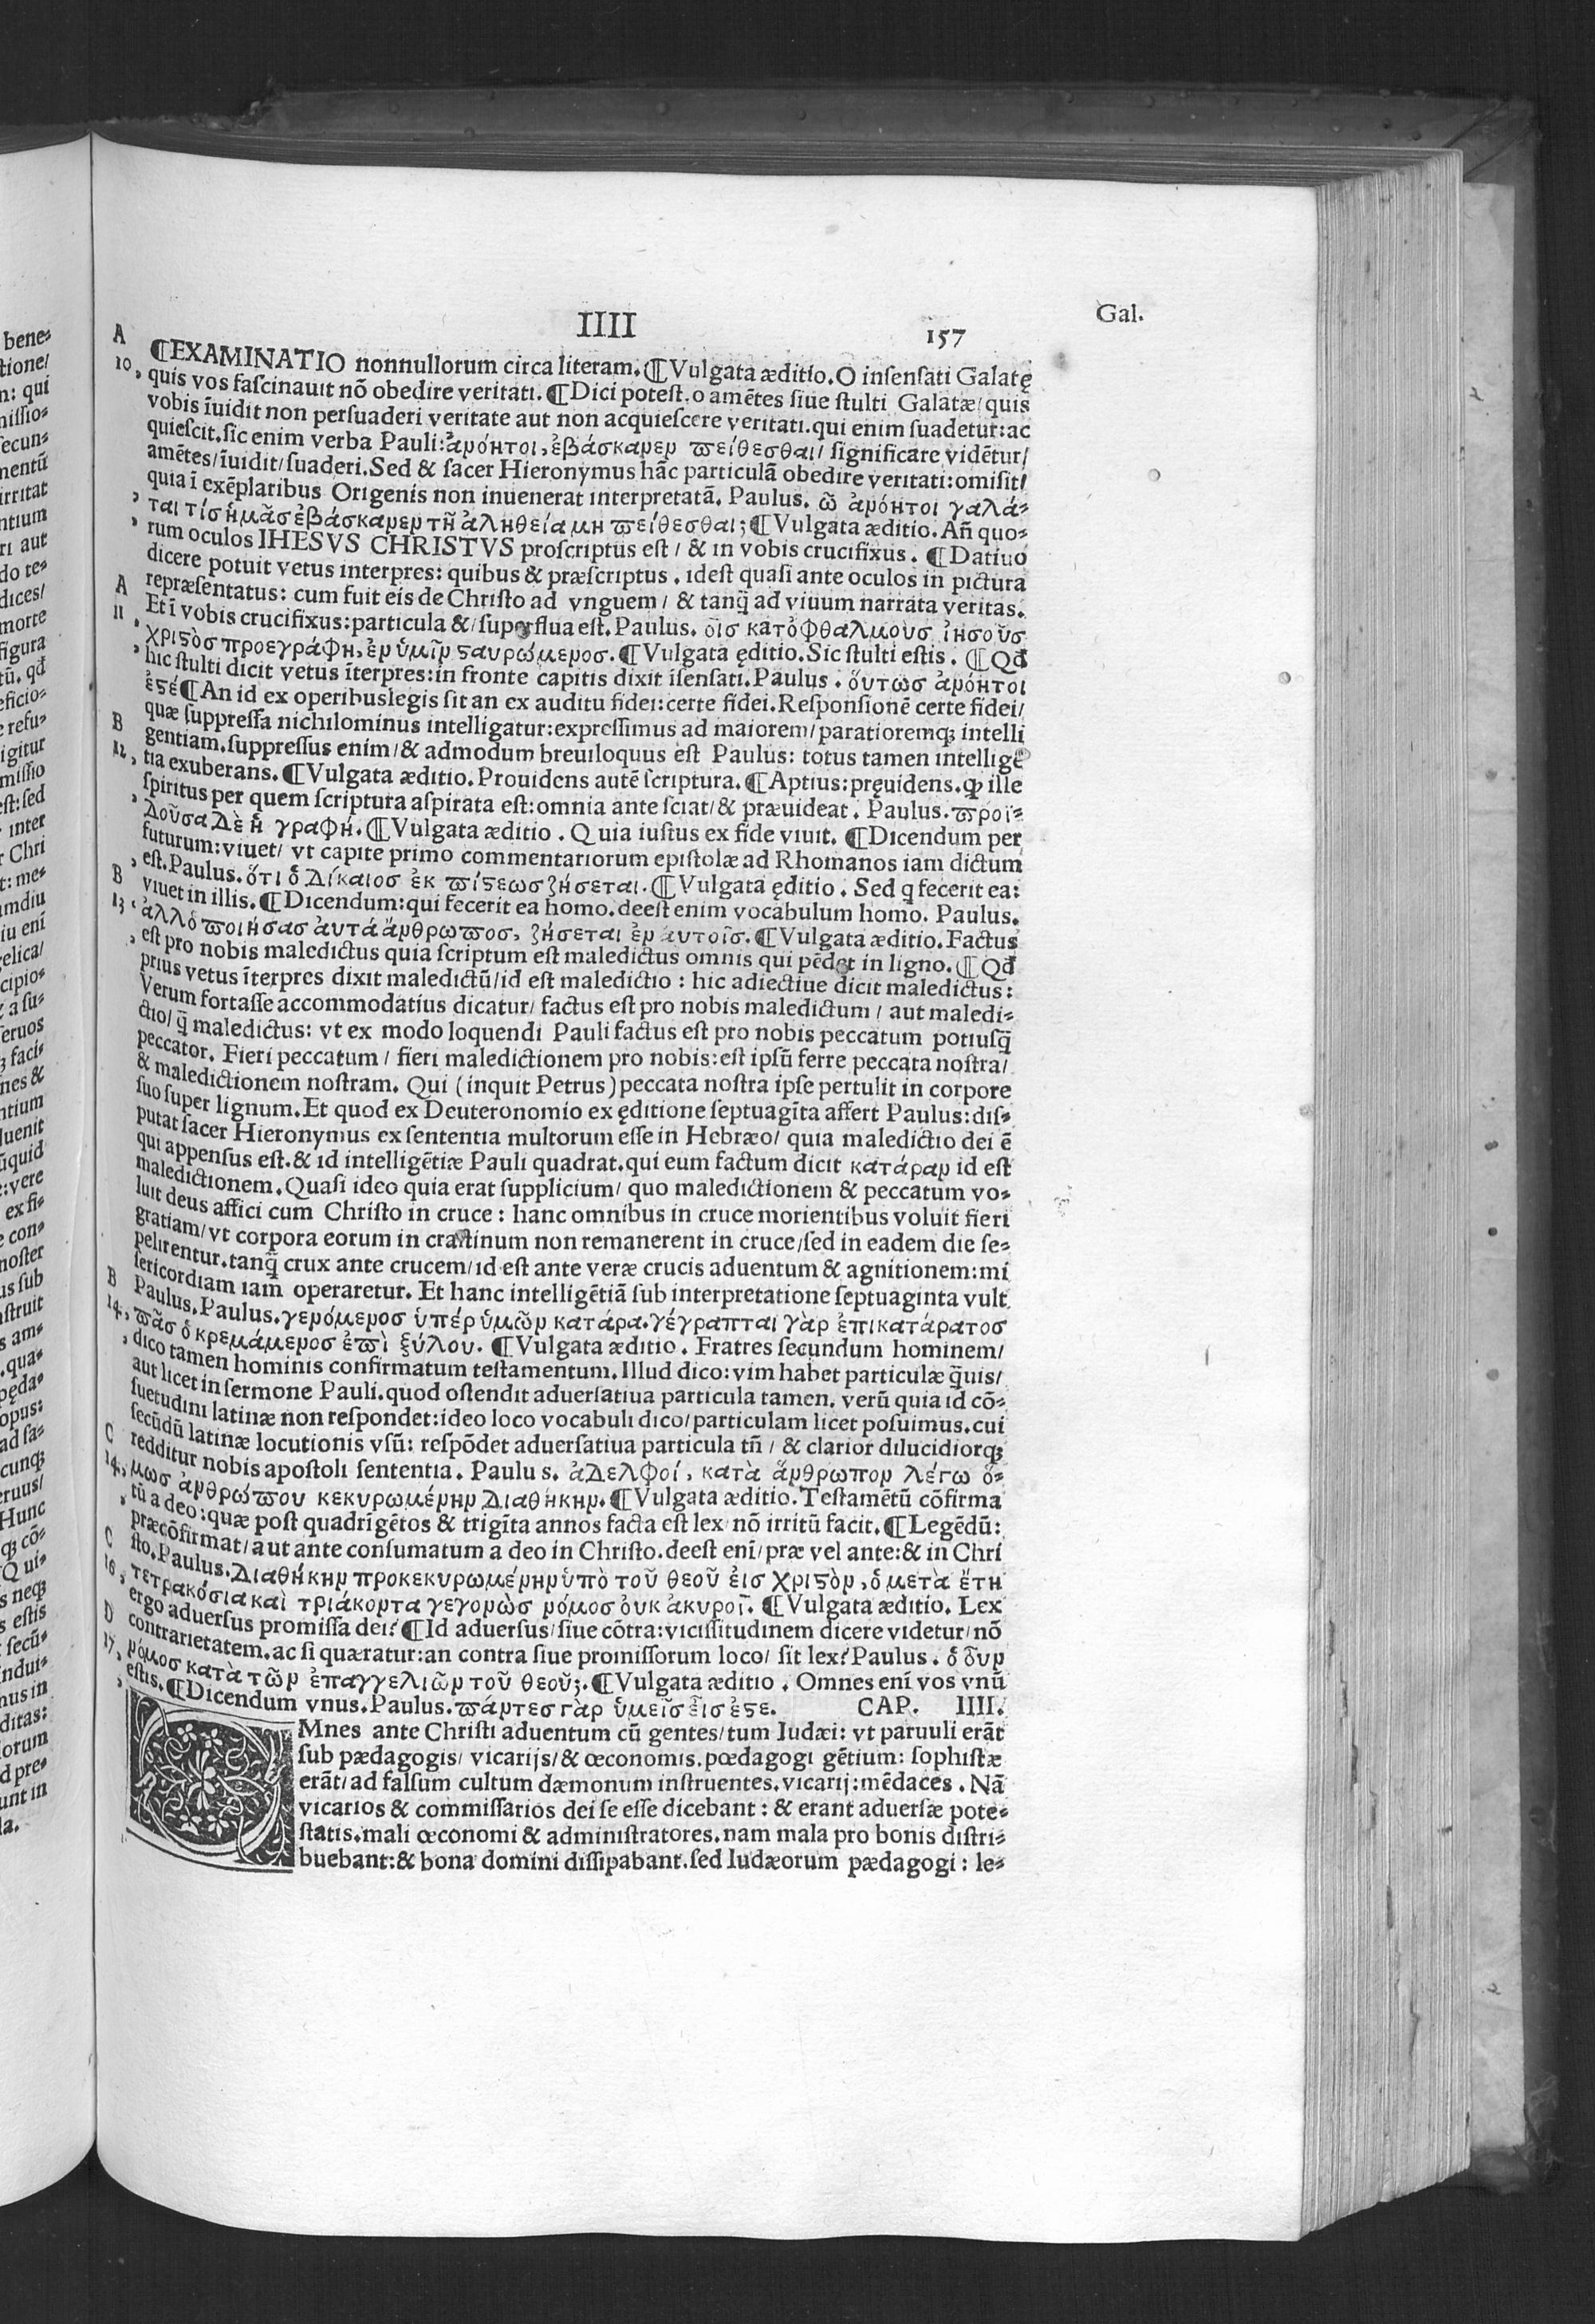 IIII
157
Gal.
A
¶EXAMINATIO nonnullorum circa literam.¶Vulgata æditio.O inſenſati Galatę
10, quis vos faſcinauit nõ obedire veritati.¶Dici poteſt.o amẽtes ſiue ſtulti Galatæ/quis
vobis ĩuidit non perſuaderi veritate aut non acquieſcere veritati.qui enim ſuadetur:ac
quieſcit.ſic enim verba Pauli:ἀνόητοι,ἐβάσκανεν πείθεσθαι/ ſignificare vidẽtur/
amẽtes/ĩuidit/ſuaderi.Sed & ſacer Hieronymus hãc particulã obedire veritati:omiſit/
quia ĩ exẽplaribus Origenis non inuenerat interpretatã. Paulus. ὦ ἀνόητοι γαλά-
, ται τίσ ἡμᾶσ ἐβάσκανεν τῆ ἀληθεία μη πείθεσθαι;¶Vulgata æditio.Añ quo-
, rum oculos IHESVS CHRISTVS proſcriptus eſt/ & in vobis crucifixus. ¶Datiuo
dicere potuit vetus interpres: quibus & præſcriptus . ideſt quaſi ante oculos in pictura
A repræſentatus: cum fuit eis de Chriſto ad vnguem/ & tanq̃ ad viuum narrata veritas.
11 , Et ĩ vobis crucifixus:particula &/ſuperflua eſt.Paulus. οἷσ κατ᾽ὀφθαλμοὺσ ἰησοῦσ
, χριϛὸσ προεγράφη,ἐν ὑμῖν ϛαυρώμενοσ.¶Vulgata ęditio.Sic ſtulti eſtis. ¶Qđ
, hic ſtulti dicit vetus ĩterpres:in fronte capitis dixit ĩſenſati.Paulus . ὅυτωσ ἀνόητοι
ἐϛέ¶An id ex operibuslegis ſit an ex auditu fidei:certe fidei.Reſponſionẽ certe fidei/
quæ ſuppreſſa nichilominus intelligatur:expreſſimus ad maiorem/paratioremq; intelli
B gentiam.ſuppreſſus enim/& admodum breuiloquus eſt Paulus: totus tamen intelligẽ
12, tia exuberans.¶Vulgata æditio.Prouidens autẽ ſcriptura.¶Aptius:pręuidens.ꝙ ille
ſpiritus per quem ſcriptura aſpirata eſt:omnia ante ſciat/& præuideat. Paulus.προϊ-
, δοῦσα δὲ ἡ γραφή.¶Vulgata æditio . Quia iuſtus ex fide viuit. ¶Dicendum per
futurum:viuet/ vt capite primo commentariorum epiſtolæ ad Rhomanos iam dictum
, eſt.Paulus.ὅτι ὁ δίκαιοσ ἐκ πίϛεωσ ζήσεται.¶Vulgata ęditio . Sed q fecerit ea:
B viuet in illis.¶Dicendum:qui fecerit ea homo.deeſt enim vocabulum homo. Paulus.
13 , ἀλλ᾽ὁ ποιήσασ ἀυτὰ ἄνθρωποσ, ζήσεται ἐν ἀυτοῖσ.¶Vulgata æditio.Factus
, eſt pro nobis maledictus quia ſcriptum eſt maledictus omnis qui pẽdet in ligno.¶Qđ
prius vetus ĩterpres dixit maledictũ/id eſt maledictio : hic adiectiue dicit maledictus:
Verum fortaſſe accommodatius dicatur/ factus eſt pro nobis maledictum/ aut maledi-
ctio/ q̃ maledictus: vt ex modo loquendi Pauli factus eſt pro nobis peccatum potiuſq̃
peccator. Fieri peccatum/ fieri maledictionem pro nobis:eſt ipſũ ferre peccata noſtra/
& maledictionem noſtram. Qui (inquit Petrus)peccata noſtra ipſe pertulit in corpore
ſuo ſuper lignum.Et quod ex Deuteronomio ex ęditione ſeptuagĩta affert Paulus:diſ-
putat ſacer Hieronymus ex ſententia multorum eſſe in Hebræo/ quia maledictio dei ẽ
qui appenſus eſt.& id intelligẽtiæ Pauli quadrat.qui eum factum dicit κατάραν id eſt
maledictionem.Quaſi ideo quia erat ſupplicium/ quo maledictionem & peccatum vo-
luit deus affici cum Chriſto in cruce : hanc omnibus in cruce morientibus voluit fieri
gratiam/vt corpora eorum in craſtinum non remanerent in cruce/ſed in eadem die ſe-
pelirentur.tanq̃ crux ante crucem/id eſt ante veræ crucis aduentum & agnitionem:mi
ſericordiam iam operaretur. Et hanc intelligẽtiã ſub interpretatione ſeptuaginta vult
B Paulus.Paulus.γενόμενοσ ὑπέρ ὑμῶν κατάρα.γέγραπται γὰρ ἐπικατάρατοσ
14, πᾶσ ὁ κρεμάμενοσ ἐπὶ ξύλου. ¶Vulgata æditio. Fratres ſecundum hominem/
, dico tamen hominis confirmatum teſtamentum.Illud dico:vim habet particulæ q̃uis/
aut licet in ſermone Pauli.quod oſtendit aduerſatiua particula tamen. verũ quia id cõ-
ſuetudini latinæ non reſpondet:ideo loco vocabuli dico/particulam licet poſuimus.cui
ſecũdũ latinæ locutionis vſũ: reſpõdet aduerſatiua particula tñ/ & clarior dilucidiorq;
C redditur nobis apoſtoli ſententia. Paulus. ἀδελφοί, κατὰ ἄνθρωπον λέγω ὅ-
14, μωσ ἀνθρώπου κεκυρωμένην διαθήκην.¶Vulgata æditio.Teſtamẽtũ cõfirma
, tũ a deo:quæ poſt quadrĩgẽtos & trigĩta annos facta eſt lex nõ irritũ facit.¶Legẽdũ:
præcõfirmat/aut ante conſumatum a deo in Chriſto.deeſt enĩ/præ vel ante:& in Chri
C ſto.Paulus.Διαθήκην προκεκυρωμένην ὑπὸ τοῦ θεοῦ ἐισ χριϛὸν,ὁ μετὰ ἔτη
16, τετρακόσια καὶ τριάκοντα γεγονὼσ νόμοσ ὀυκ ἀκυροῖ. ¶Vulgata æditio. Lex
ergo aduerſus promiſſa dei?¶Id aduerſus/ſiue cõtra:viciſſitudinem dicere videtur/nõ
D contrarietatem.ac ſi quæratur:an contra ſiue promiſſorum loco/ ſit lex?Paulus . ὁ ὀῦν
17, νόμοσ κατὰ τῶν ἐπαγγελιῶν τοῦ θεοῦ;.¶Vulgata æditio . Omnes enĩ vos vnũ
, eſtis.¶Dicendum vnus.Paulus.πάντεσ γὰρ ὑμεῖσ ἐῖσ ἐϛε. CAP. IIII.
Mnes ante Chriſti aduentum cũ gentes/tum Iudæi: vt paruuli erãt
ſub pædagogis/ vicarijs/& œconomis.pœdagogi gẽtium: ſophiſtæ
erãt/ad falſum cultum dæmonum inſtruentes.vicarij:mẽdaces . Nã
vicarios & commiſſarios dei ſe eſſe dicebant : & erant aduerſæ pote-
ſtatis.mali œconomi & adminiſtratores.nam mala pro bonis diſtri-
buebant:& bona domini diſſipabant.ſed Iudæorum pædagogi : le-